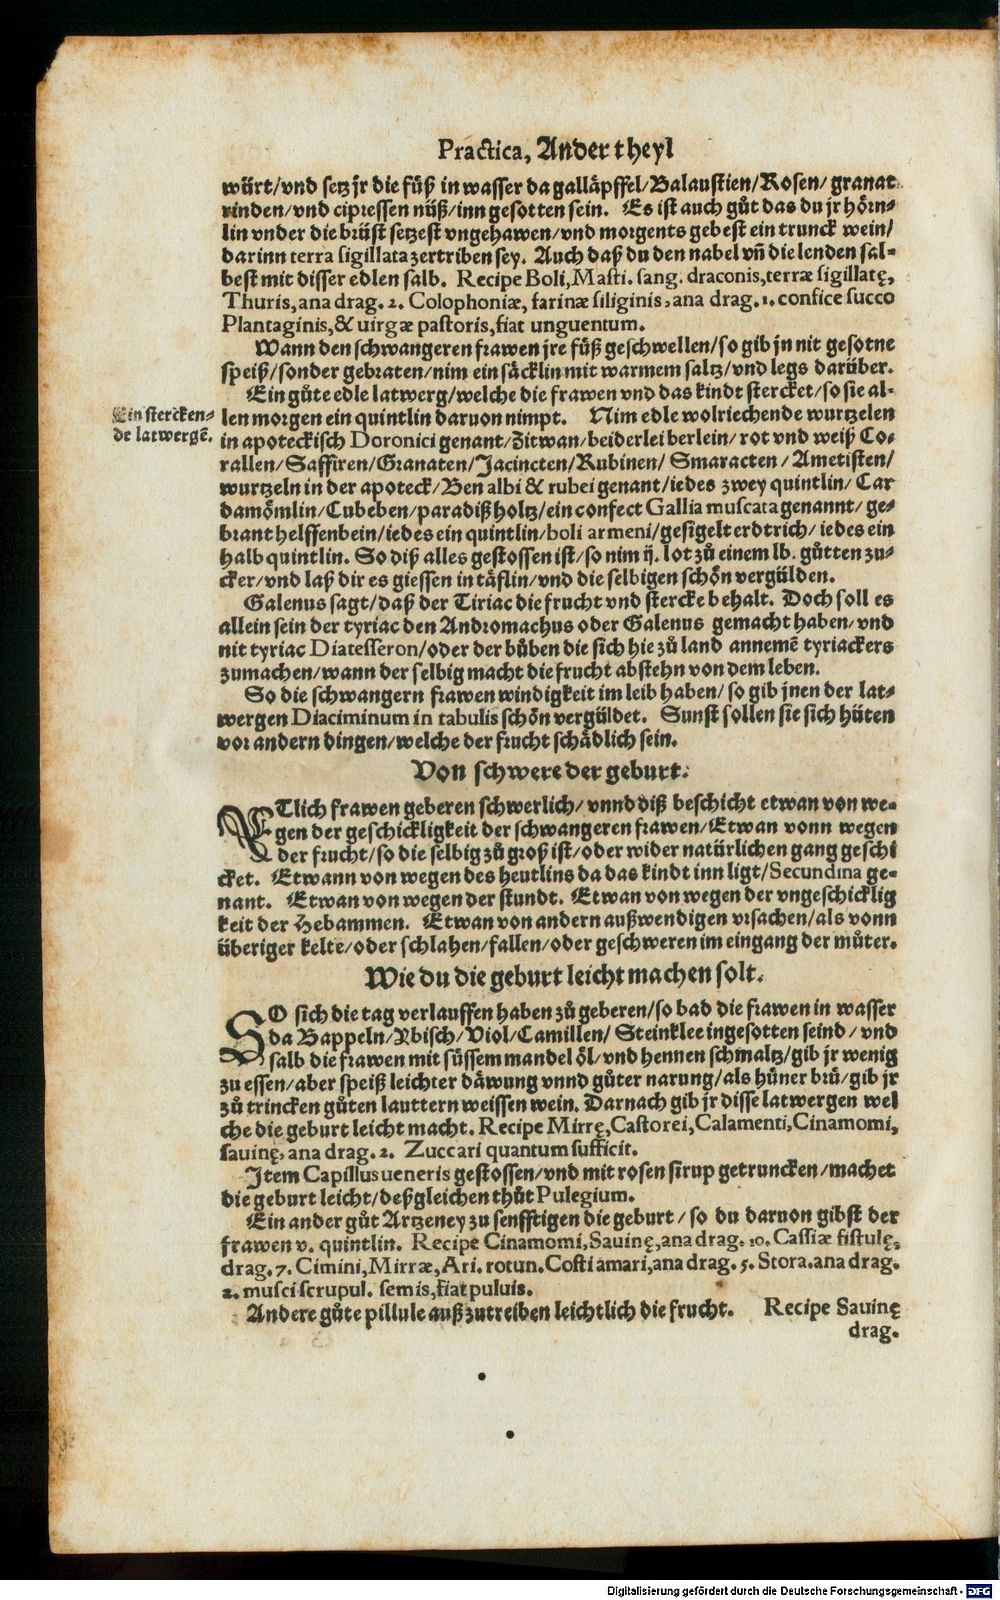 Practica, Ander theyl
würt/vnd setz jr die füß in wasser da galläpffel/Balaustien/Rosen/ granat
rinden/vnd cipressen nüß/inn gesotten sein. Es ist auch gůt das du jr hörn-
lin vnder die brüst setzest vngehawen/vnd morgents gebest ein trunck wein/
darinn terra sigillata zertriben sey. Auch daß du den nabel vñ die lenden sal-
best mit disser edlen salb. Recipe Boli, Masti. sang. draconis, terræ sigillatę,
Thuris, ana drag. 2. Colophoniæ, farinæ siliginis, ana drag. 1. confice succo
Plantaginis, & uirgæ pastoris, fiat unguentum.
Wann den schwangeren frawen jre füß geschwellen/so gib jn nit gesotne
speiß/sonder gebraten/nim ein säcklin mit warmem saltz/vnd legs darüber.
Ein gůte edle latwerg/welche die frawen vnd das kindt stercket/so sie al-
Ein stercken-
de latwergẽ.
len morgen ein quintlin daruon nimpt. Nim edle wolriechende wurtzelen
in apoteckisch Doronici genant/Zitwan/beiderlei berlein/rot vnd weiß Co-
rallen/Saffiren/Granaten/Jacincten/Rubinen/ Smaracten/Ametisten/
wurtzeln in der apoteck/Ben albi & rubei genant/iedes zwey quintlin/ Car
damömlin/Cubeben/paradißholtz/ein confect Gallia muscata genannt/ ge-
brant helffenbein/iedes ein quintlin/boli armeni/gesigelt erdtrich/ iedes ein
halb quintlin. So diß alles gestossen ist/so nim ij. lot zů einem lb. gůtten zu-
cker/vnd laß dir es giessen in täflin/vnd die selbigen schön vergülden.
Galenus sagt/daß der Tiriac die frucht vnd stercke behalt. Doch soll es
allein sein der tyriac den Andromachus oder Galenus gemacht haben/vnd
nit tyriac Diatesseron/oder der bůben die sich hie zů land annemẽ tyriackers
zumachen/wann der selbig macht die frucht abstehn von dem leben.
So die schwangern frawen windigkeit im leib haben/ so gib jnen der lat-
wergen Diaciminum in tabulis schön vergüldet. Sunst sollen sie sich hüten
vor andern dingen/welche der frucht schädlich sein.
Von schwere der geburt.
ETlich frawen geberen schwerlich/ vnnd diß beschicht etwan von we-
gen der geschickligkeit der schwangeren frawen/Etwan vonn wegen
der frucht/so die selbig zů groß ist/oder wider natürlichen gang geschi
cket. Etwann von wegen des heutlins da das kindt inn ligt/Secundina ge-
nant. Etwan von wegen der stundt. Etwan von wegen der vngeschicklig
keit der Hebammen. Etwan von andern außwendigen vrsachen/als vonn
überiger kelte/oder schlahen/fallen/oder geschweren im eingang der můter.
Wie du die geburt leicht machen solt.
SO sich die tag verlauffen haben zů geberen/so bad die frawen in wasser
da Bappeln/Ybisch/Viol/Camillen/ Steinklee ingesotten seind/ vnd
salb die frawen mit süssem mandel öl/vnd hennen schmaltz/gib jr wenig
zu essen/aber speiß leichter däwung vnnd gůter narung/als hüner brů/gib jr
zů trincken gůten lauttern weissen wein. Darnach gib jr disse latwergen wel
che die geburt leicht macht. Recipe Mirrę, Castorei, Calamenti, Cinamomi,
sauinę, ana drag. 2. Zuccari quantum sufficit.
Item Capillus ueneris gestossen/vnd mit rosen sirup getruncken/machet
die geburt leicht/deßgleichen thůt Pulegium.
Ein ander gůt Artzeney zu senfftigen die geburt/ so du daruon gibst der
frawen v. quintlin. Recipe Cinamomi, Sauinę, ana drag. 10. Cassiæ fistulę,
drag. 7. Cimini, Mirræ, Ari. rotun. Costi amari, ana drag. 5. Stora. ana drag.
2. musci scrupul. semis, fiat puluis.
Andere gůte pillule außzutreiben leichtlich die frucht. Recipe Sauinę
drag.
Digitalisierung gefördert durch die Deutsche Forschungsgemeinschaft - DFG